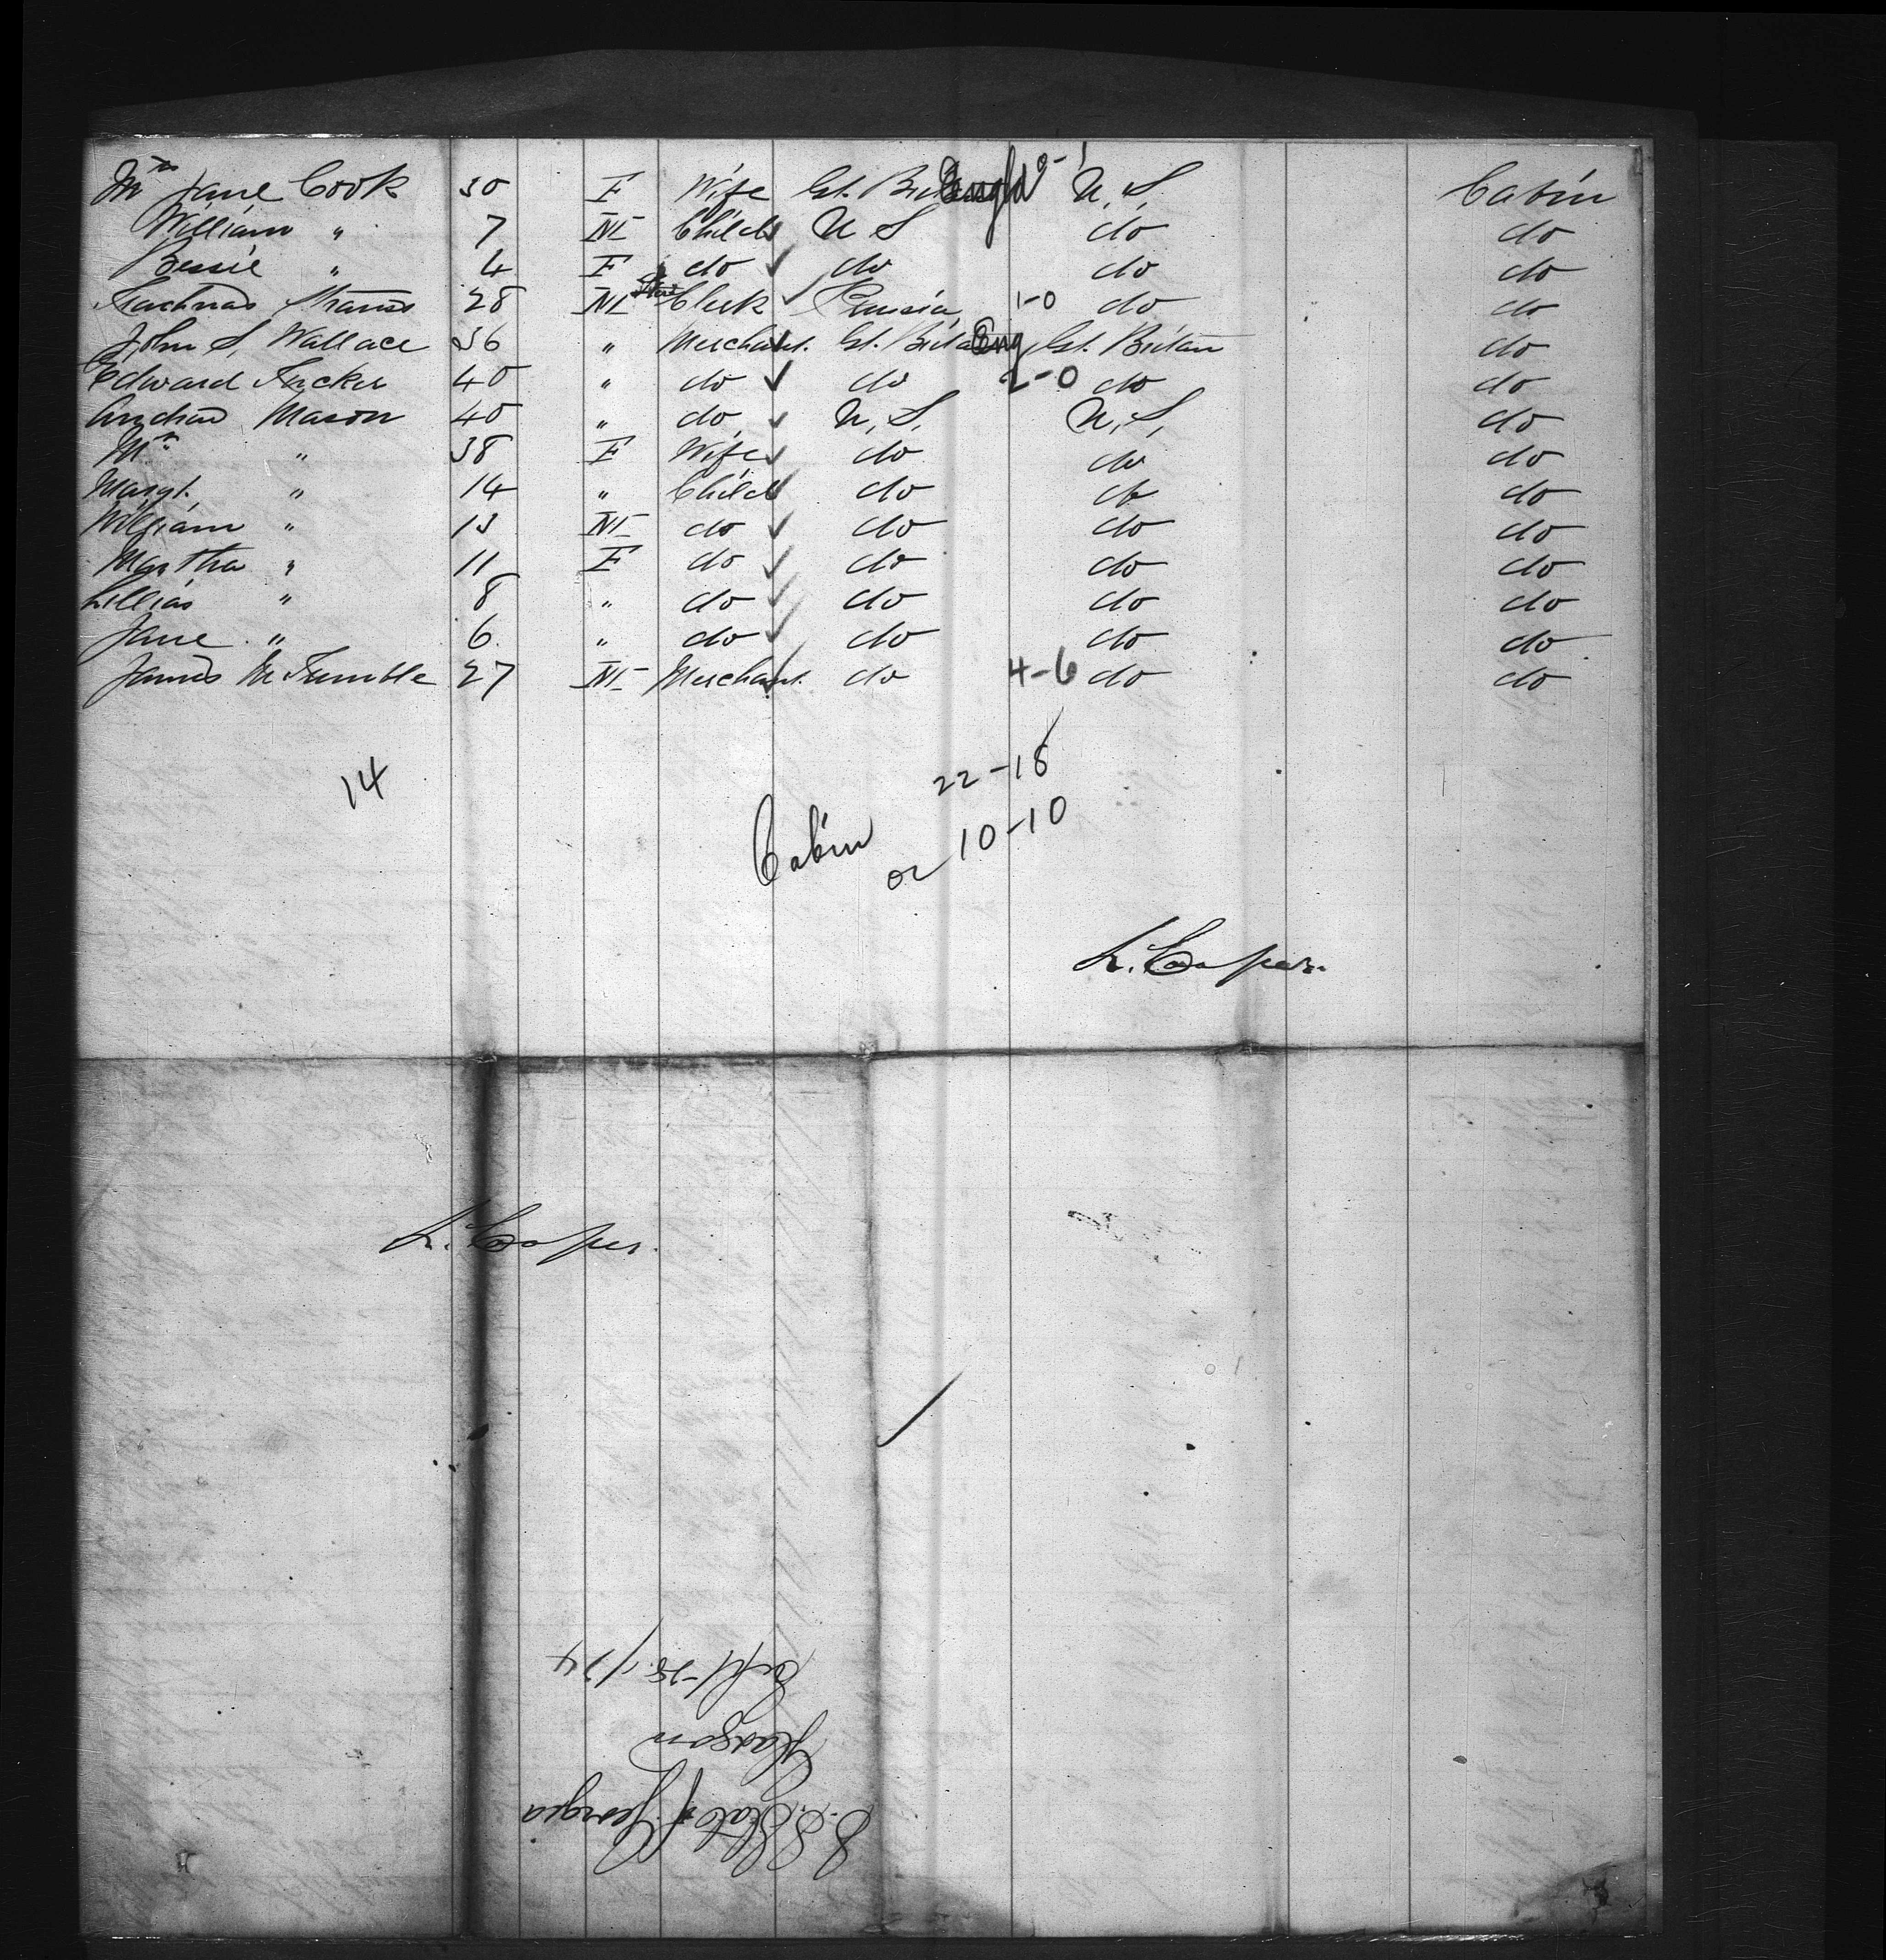 Mrs Jane Cook 30 F Wife Gt. Britain Engld 0-1 U.S. Cabin
William " 7 M Child U S do do
Bessie " 4 F do do do do
Strauss 28 M Clerk Prussia 1-0 do do
John S. Wallace 36 " Merchant. Gt. Britain Eng Gt. Britain do
Edward Tucker 40 " do do 2-0 do do
Andrew Mason 40 " do U.S. U.S. do
Mrs " 38 F Wife do do do
Margt. " 14 " Child do do do
William " 13 M do do do do
Martha " 11 F do do do do
Lillias " 8 " do do do do
Jane " 6 " do do do do
James M Trumble 27 M Merchant. do 4-6 do do
14
22-18
Cabin or 10-10
L. Cooper.
L. Cooper.
S.S. State of Georgia
Glasgow
Sept 28, /74